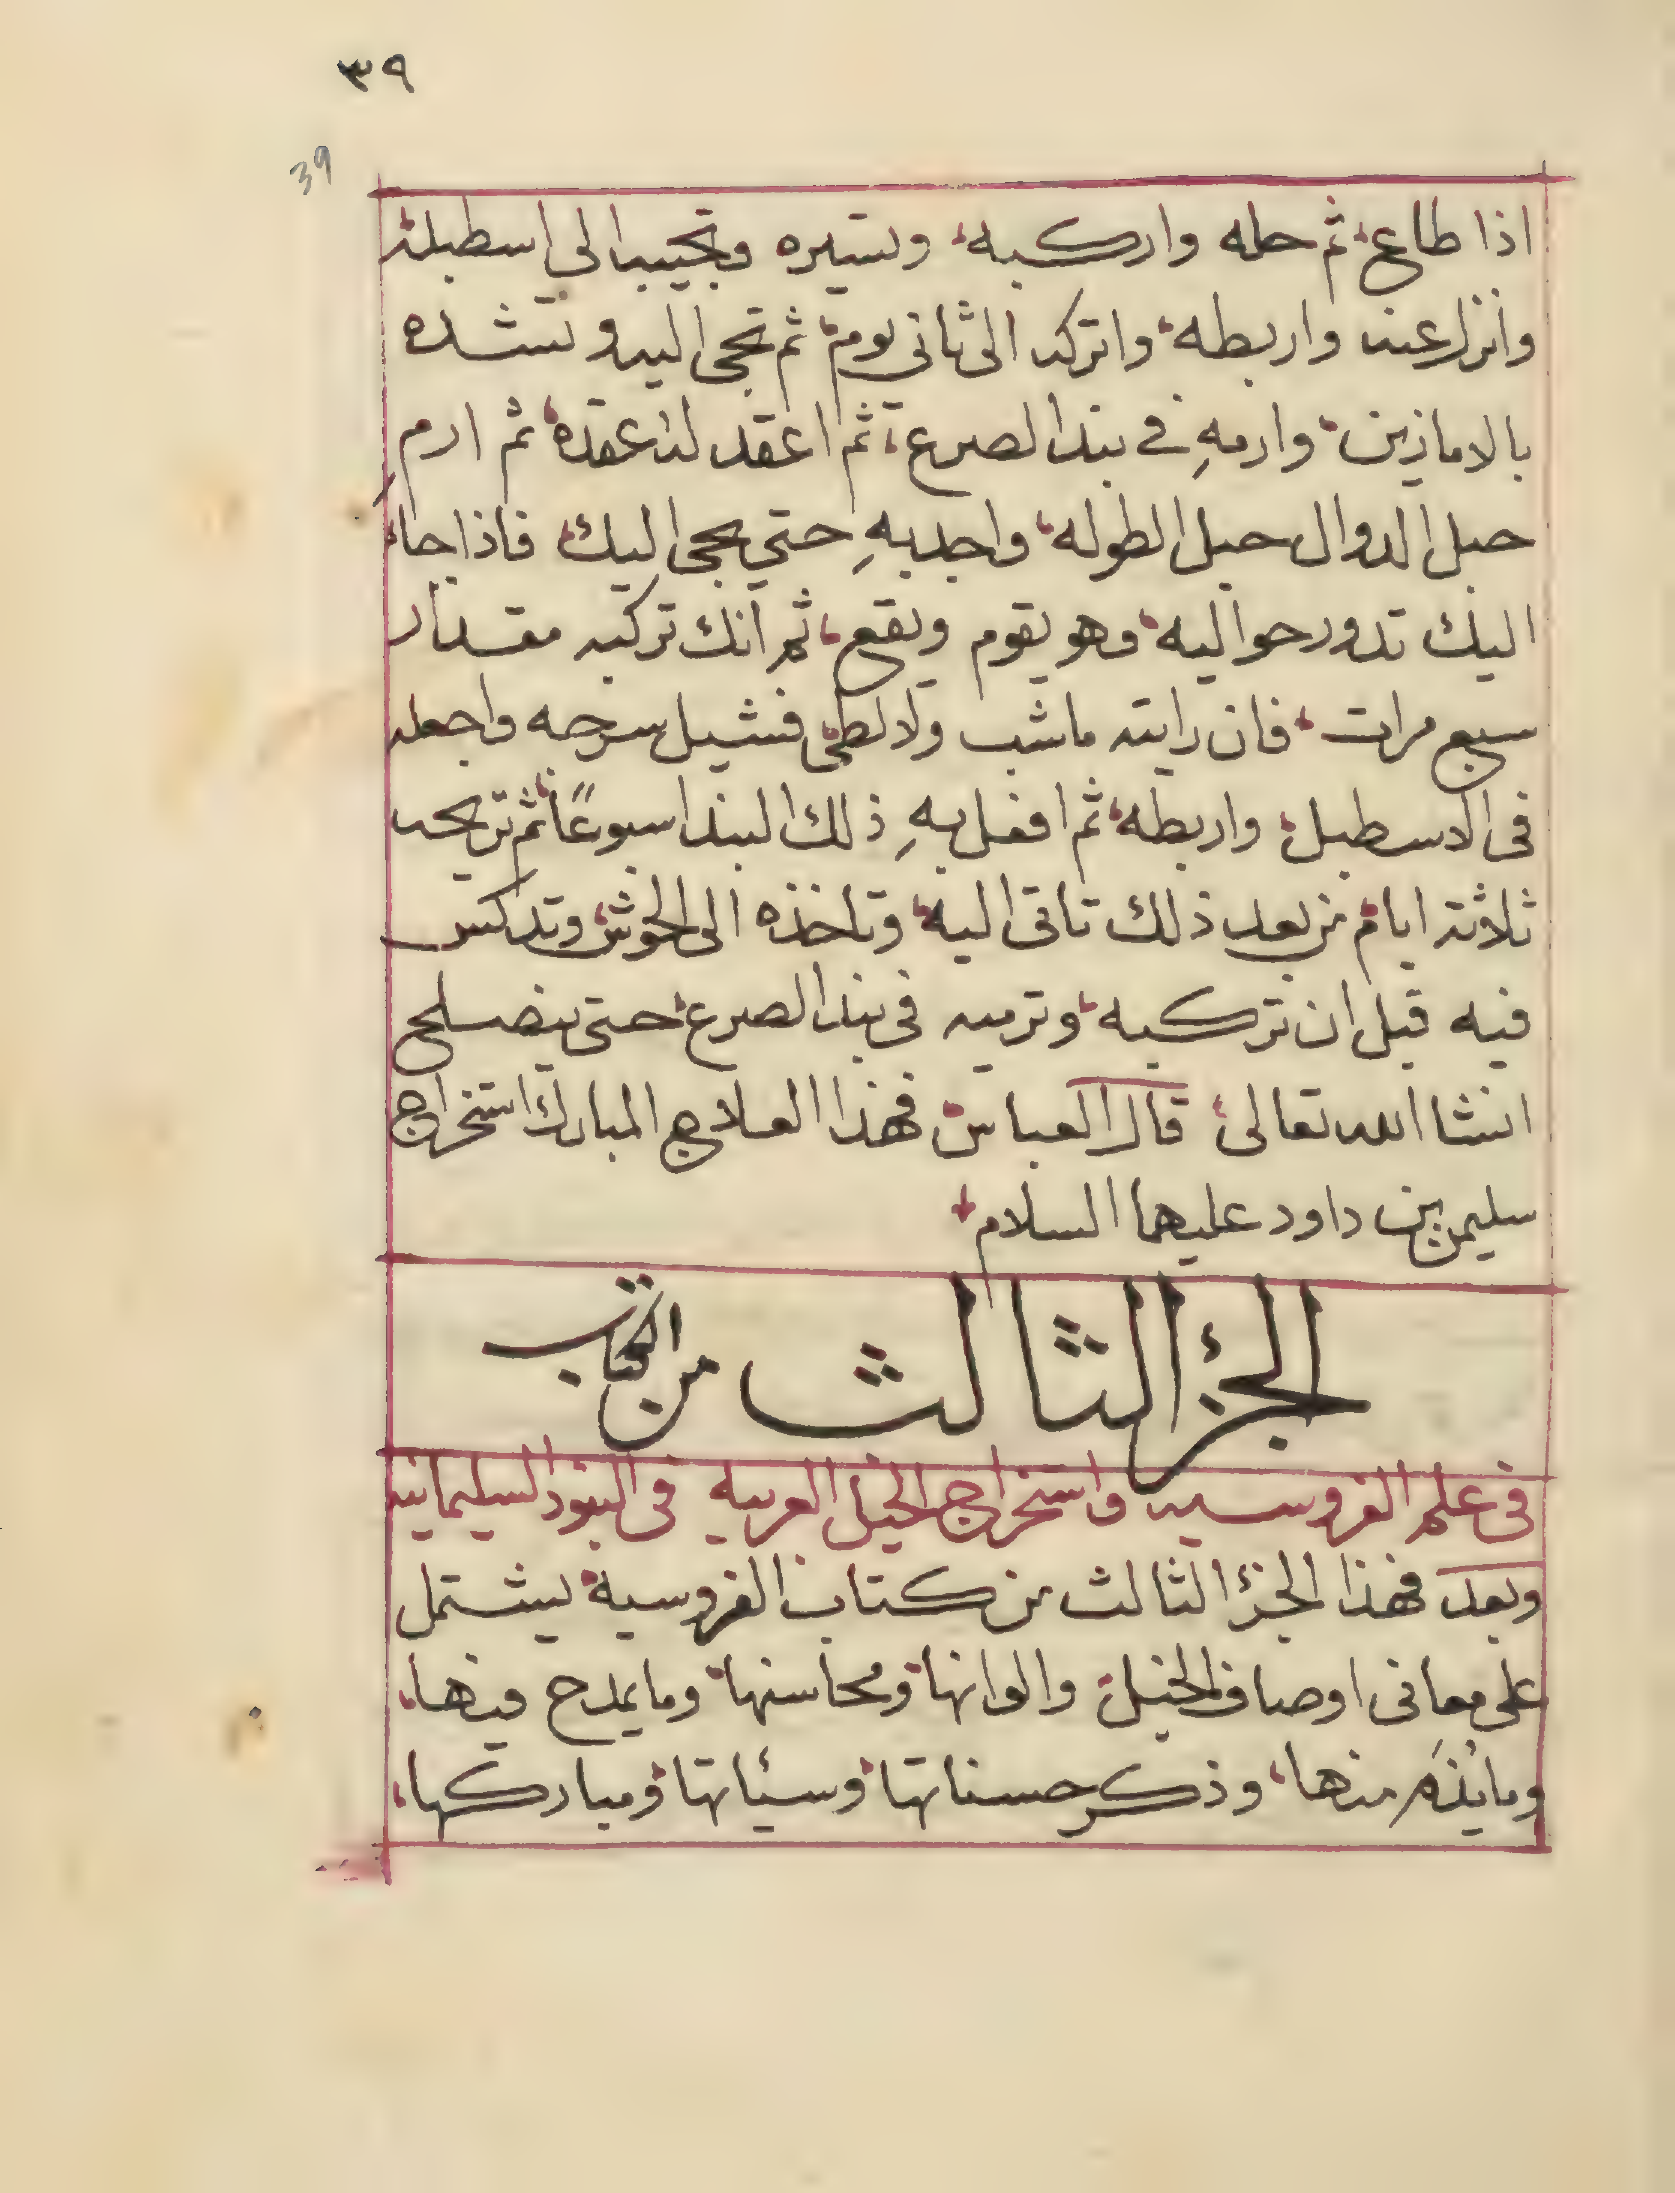 ٣٩
39
اذا طاع، ثم حله واركبه، وتسيره وتجيبه الى اسطبله
وانزل عنه واربطه، واتركه الى ثاني يوم، ثم تجى اليه وتشده
بالامازين، وارمهِ في بند الصرع، ثم اعقد له عقده، ثم ارم
حبل الدوال حبل الطوله، واجدبهِ حتي يجى اليك، فاذا جاء
اليك تدور حواليه، وهو يقوم ويقع، ثم انك تركبه مقدار
سبع مرات، فان رايته ماشب ولا لطى، فشيل سرجه واجعله
فى الاسطبل، واربطه، ثم افعل بهِ ذلك البند اسبوعًا، ثم تريحه
ثلاثة ايام، من بعد ذلك تاتى اليه، وتاخذه الى الحوش، وتدكس
فيه قبل ان تركبه، وترميه فى بند الصرع، حتى ينصلح
انشا الله تعالى، قال العباس، فهذا العلاج المبارك استخراج
سليمن بن داود عليهما السلام،
الجزء الثالث من الكتاب
فى علم الفروسيه واستخراج الخيل العربيه فى البنود السليمانيه
وبعد فهذا الجزء الثالث من كتاب الفروسية، يشتمل
على معانى اوصاف الخيل، والوانها، ومحاسنها، وما يمدح فيها،
وما يُذَم منها، وذكر حسناتها، وسيئاتها، ومباركها،